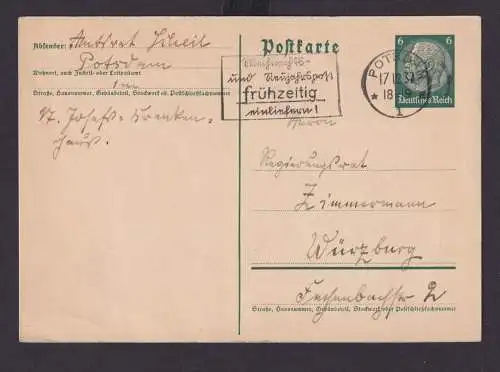 Absender: Amtsrat Scheil
Potsdam
Wohnort, auch Zustell- oder Leitpostamt
Straße, Hausnummer, Gebäudeteil, Stockwerk od. Postschließfachnummer
St. Josefs-Kranken-
haus.
Postkarte
Weihnachts-
und Neujahrspost
frühzeitig
einliefern!
POTSDAM
17.12.37
18-19
* 1
6 6
Deutsches Reich
Herrn
Regierungsrat
Zimmermann
Würzburg
2
Straße, Hausnummer, Gebäudeteil, Stockwerk oder Postschließfachnummer